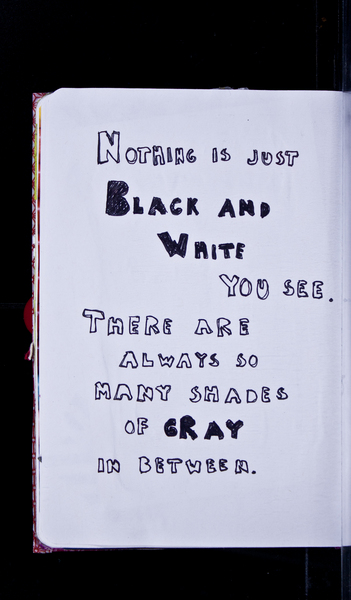 Nothing is just
Black and
White
you see.
There are
always so
many shades
of GRAY
in between.